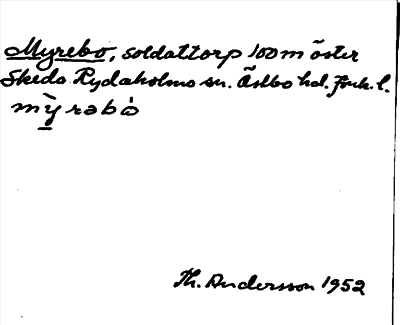 Myrebo, soldattorp 100 m öster
Skeda Rydaholms sn. Östbo hd. Jönk. l.
mỳrəbò
Th. Andersson 1952